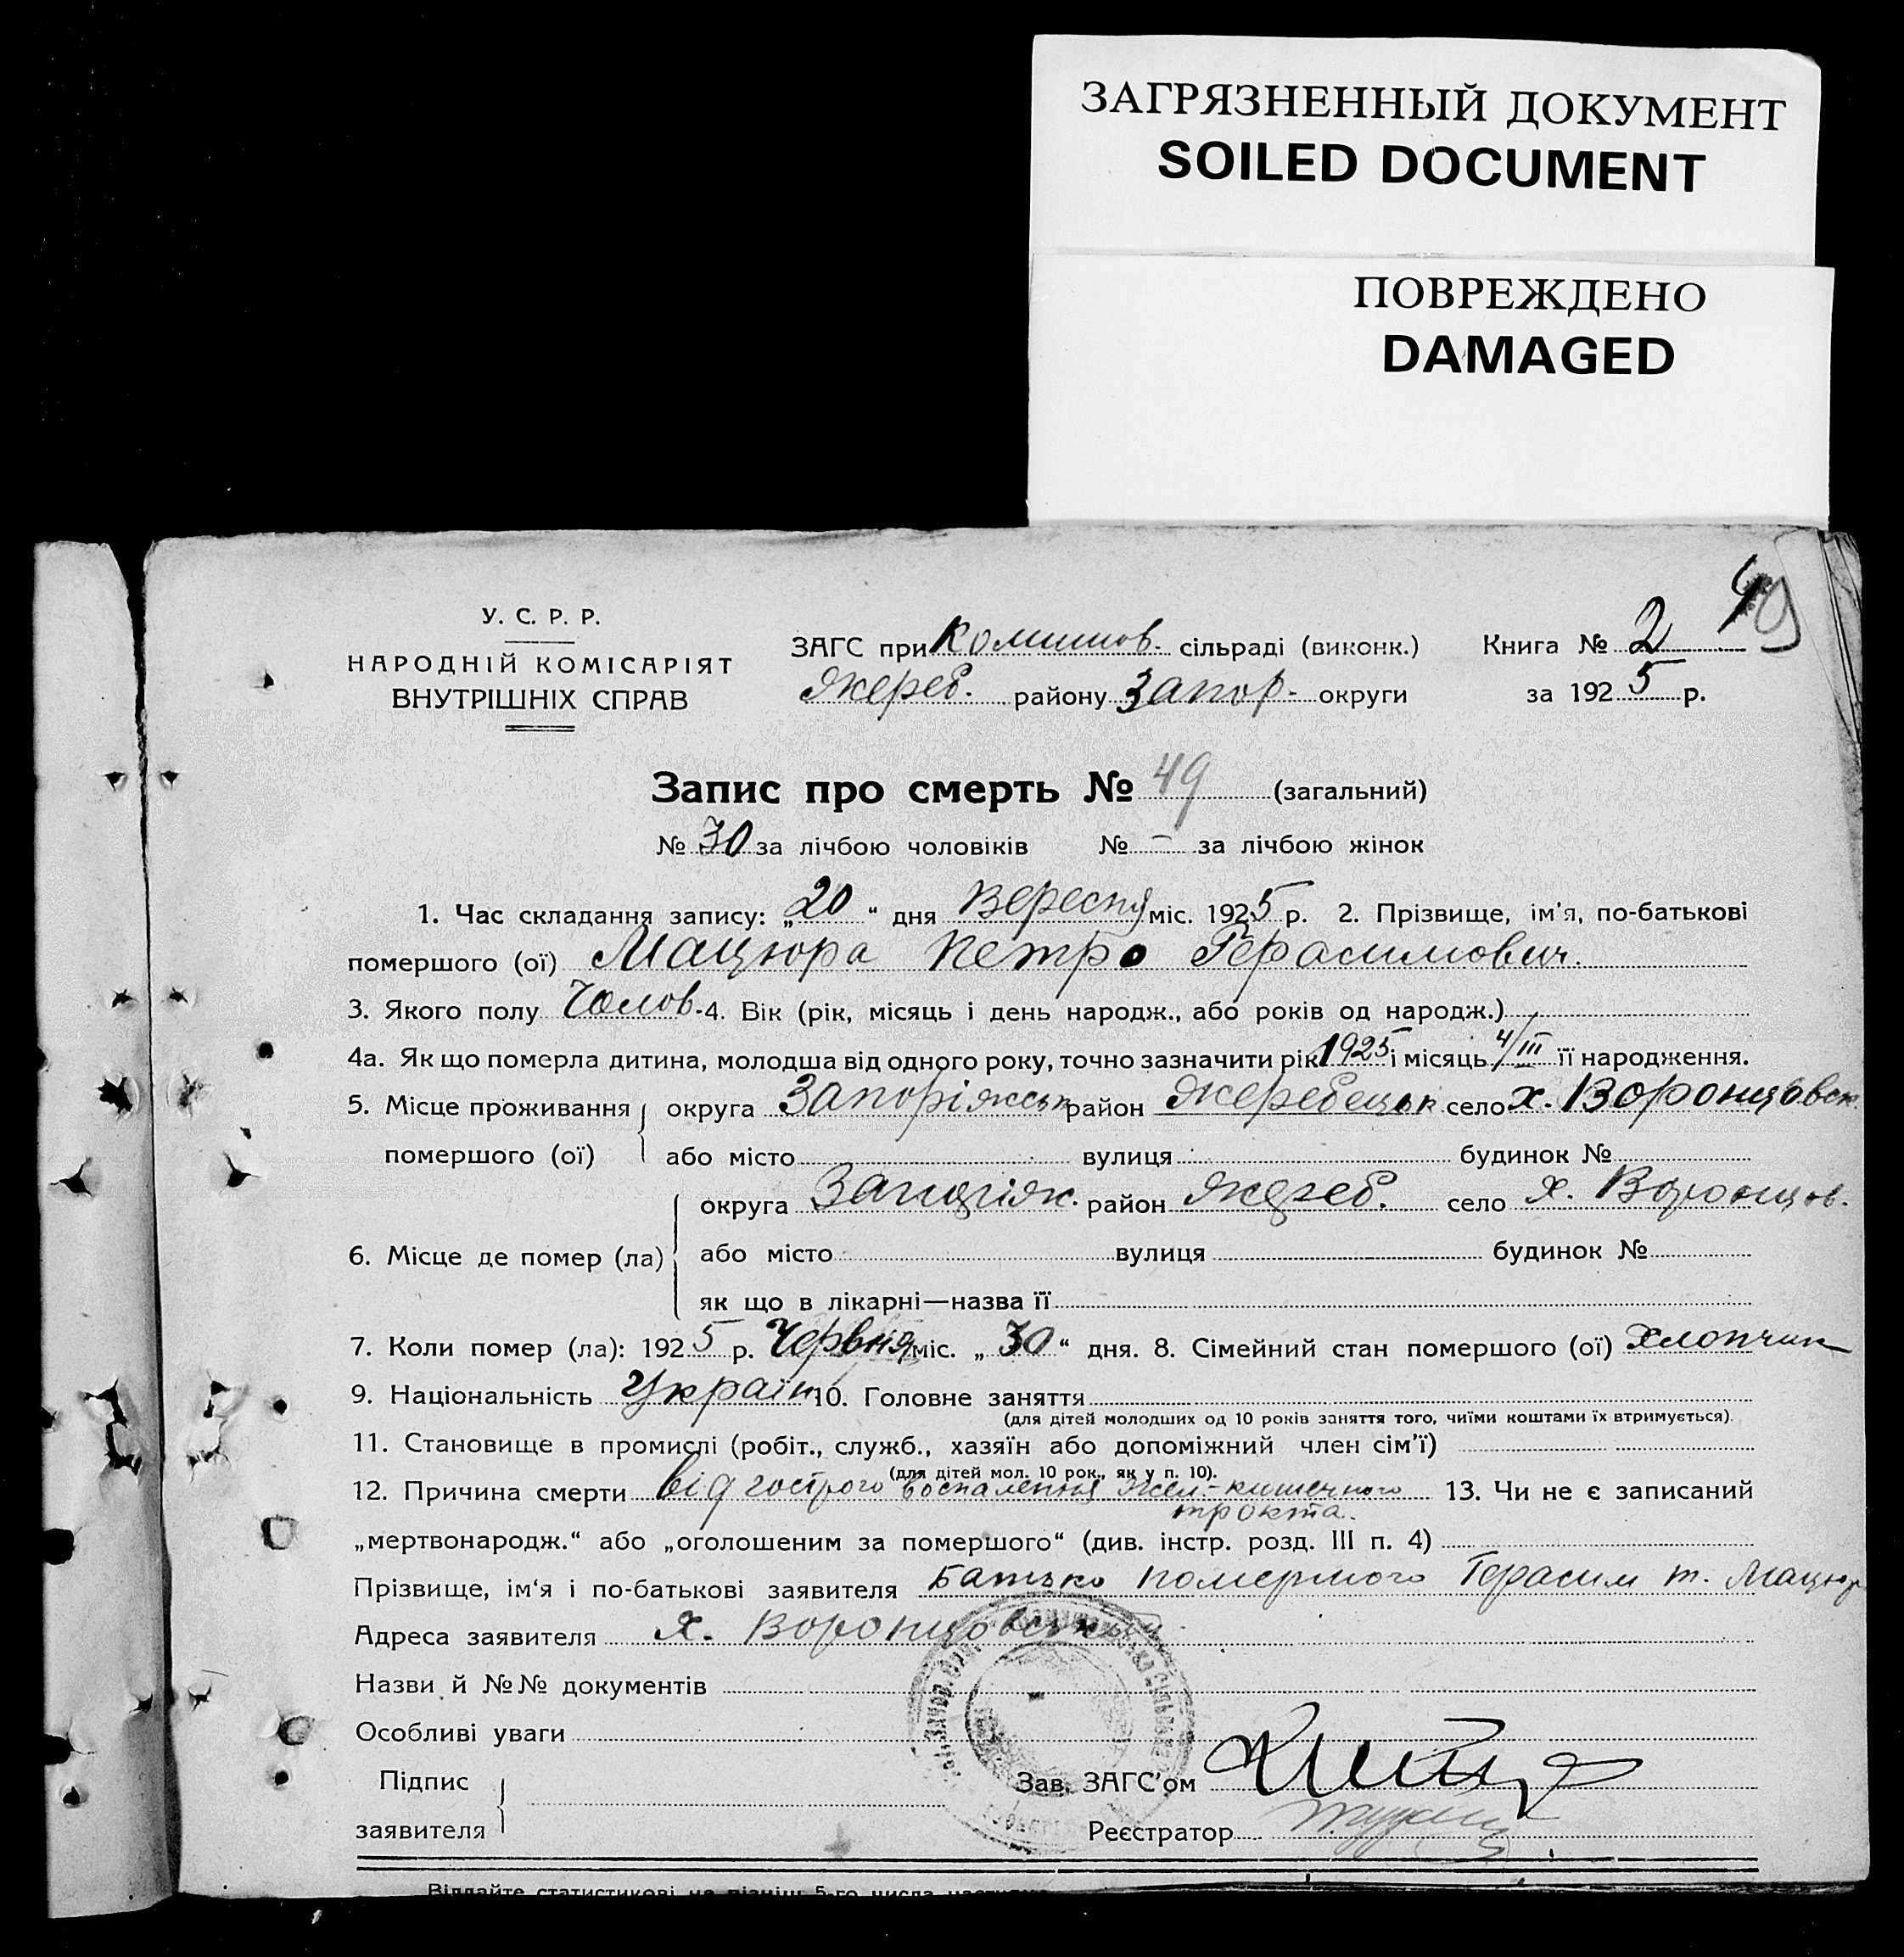 ЗАГРЯЗНЕННЫЙ ДОКУМЕНТ
SOILED DOCUMENT
ПОВРЕЖДЕНО
DAMAGED
У. С. Р. Р.
НАРОДНІЙ КОМІСАРІЯТ
ВНУТРІШНІХ СПРАВ
ЗАГС при Комишов. сільраді (виконк.) Книга № 2
Жереб. району Запор. округи за 1925 р.
Запис про смерть № 49 (загальний)
№ 30 за лічбою чоловіків № – за лічбою жінок
1. Час складання запису: „20“ дня Вересня міс. 1925 р. 2. Прізвище, ім'я, по-батькові
помершого (ої) Мацюра Петро Герасимович.
3. Якого полу Чолов. 4. Вік (рік, місяць і день народж., або років од народж.)
4а. Як що померла дитина, молодша від одного року, точно зазначити рік 1925 і місяць 4/III її народження.
5. Місце проживання округа Запоріжськ район Жеребецьк село х. Воронцовск
помершого (ої) або місто вулиця будинок №
округа Запоріж. район Жереб. село х. Воронцов.
6. Місце де помер (ла) або місто вулиця будинок №
як що в лікарні—назва її
7. Коли помер (ла): 1925 р. Червня міс. „30“ дня. 8. Сімейний стан помершого (ої) хлопчик
9. Національність Україн. 10. Головне заняття
(для дітей молодших од 10 років заняття того, чиїми коштами їх втримується).
11. Становище в промислі (робіт., служб., хазяїн або допоміжний член сім'ї)
(для дітей мол. 10 рок., як у п. 10).
12. Причина смерти від гострого воспалення жел.-кишечного 13. Чи не є записаний
тракта.
„мертвонародж.“ або „оголошеним за помершого“ (див. інстр. розд. III п. 4)
Прізвище, ім'я і по-батькові заявителя Батько помершого Герасим т. Мацюр
Адреса заявителя х. Воронцовський
Назви й №№ документів
Особливі уваги
Підпис
заявителя
Зав. ЗАГС'ом
Реєстратор